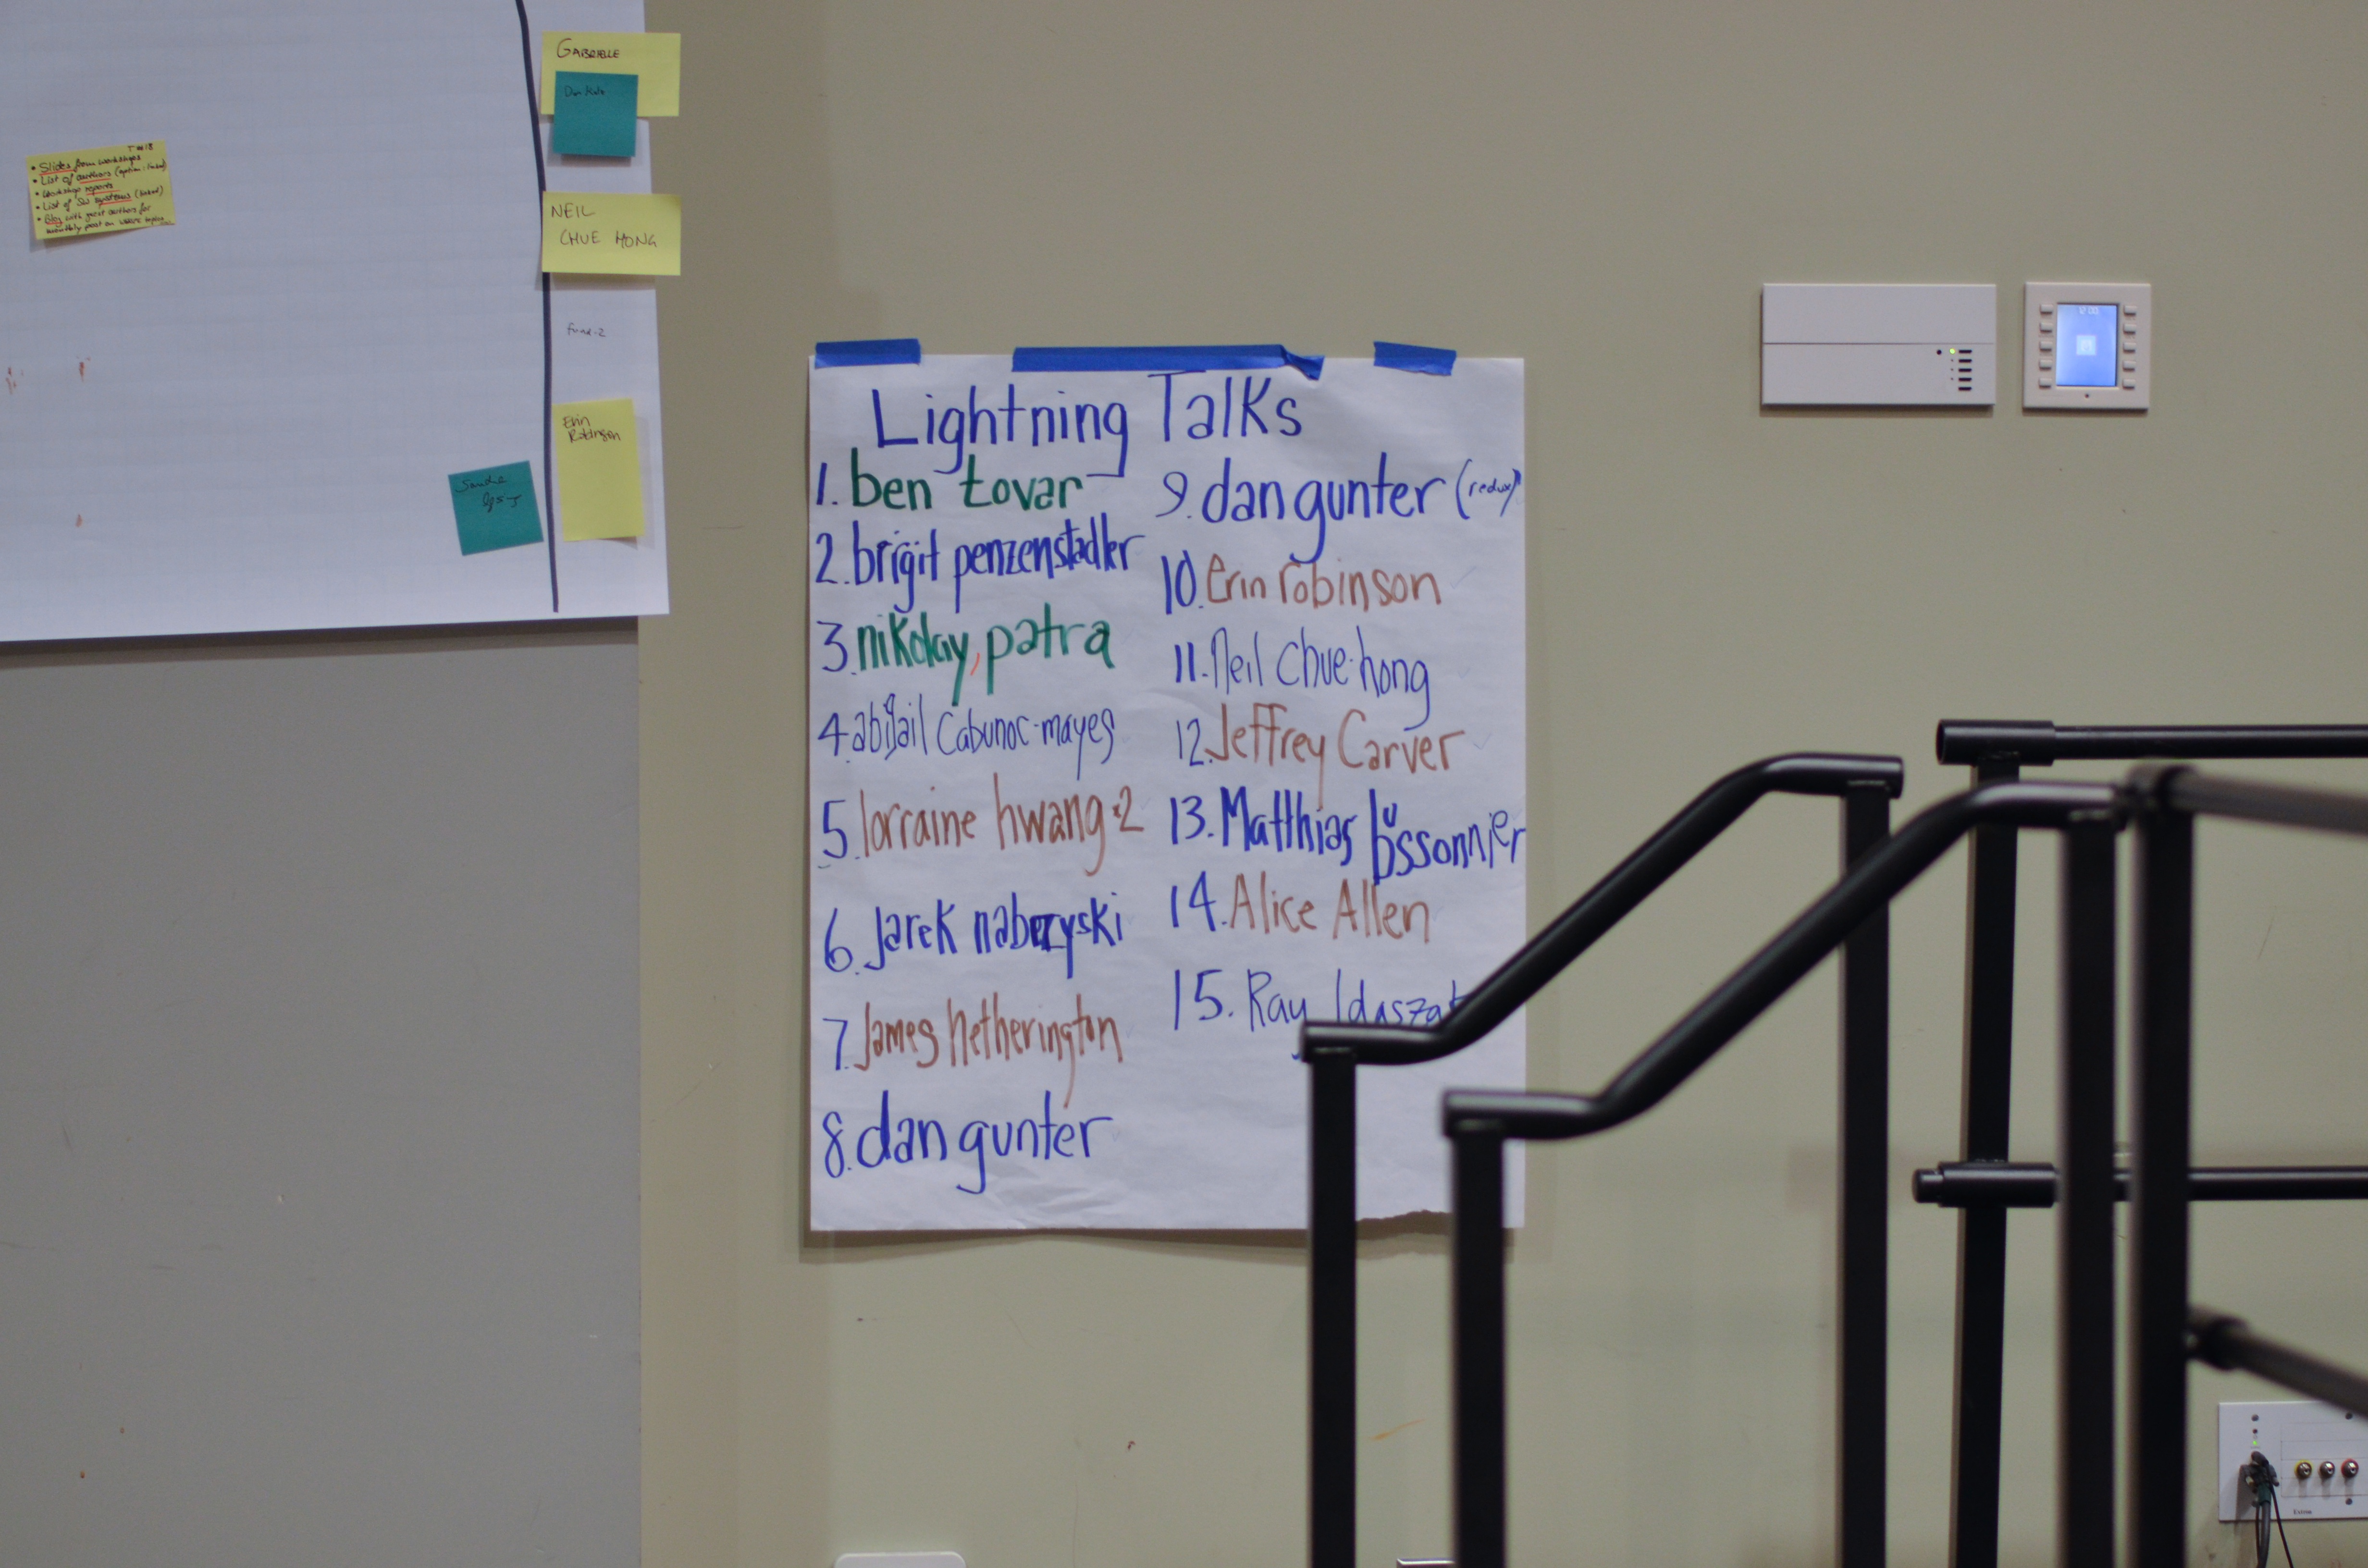 GABRIELLE
• Slides from workshops
• List of authors
• Workshop reports
• List of SW systems (linked)
• Blog with guest authors for
monthly post on
NEIL
CHUE HONG
Erin
Robinson
Lightning Talks
1. ben tovar
2. brigit penzenstadler
3. nikolay, patra
4. abigail Cabunoc-mayes
5. lorraine hwang ·2
6. Jarek nabrzyski
7. James hetherington
8. dan gunter
9. dan gunter (redux)
10. Erin robinson
11. Neil Chue-hong
12. Jeffrey Carver
13. Matthias büssonnier
14. Alice Allen
15. Ray Idaszak